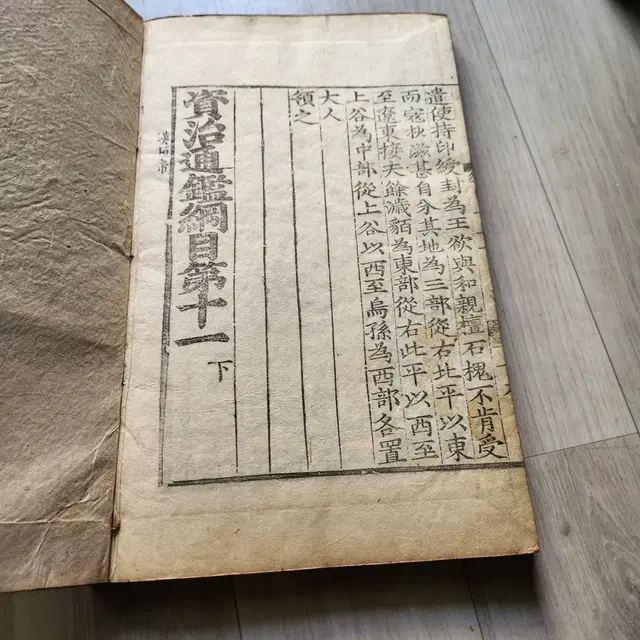 遣使持印綬封為王欲與和親檀石槐不肯受
而寇抄滋甚自分其地為三部從右北平以東
至遼東接夫餘濊貊為東部從右北平以西至
上谷為中部從上谷以西至烏孫為西部各置
大人
領之
資治通鑑綱目第十一 下